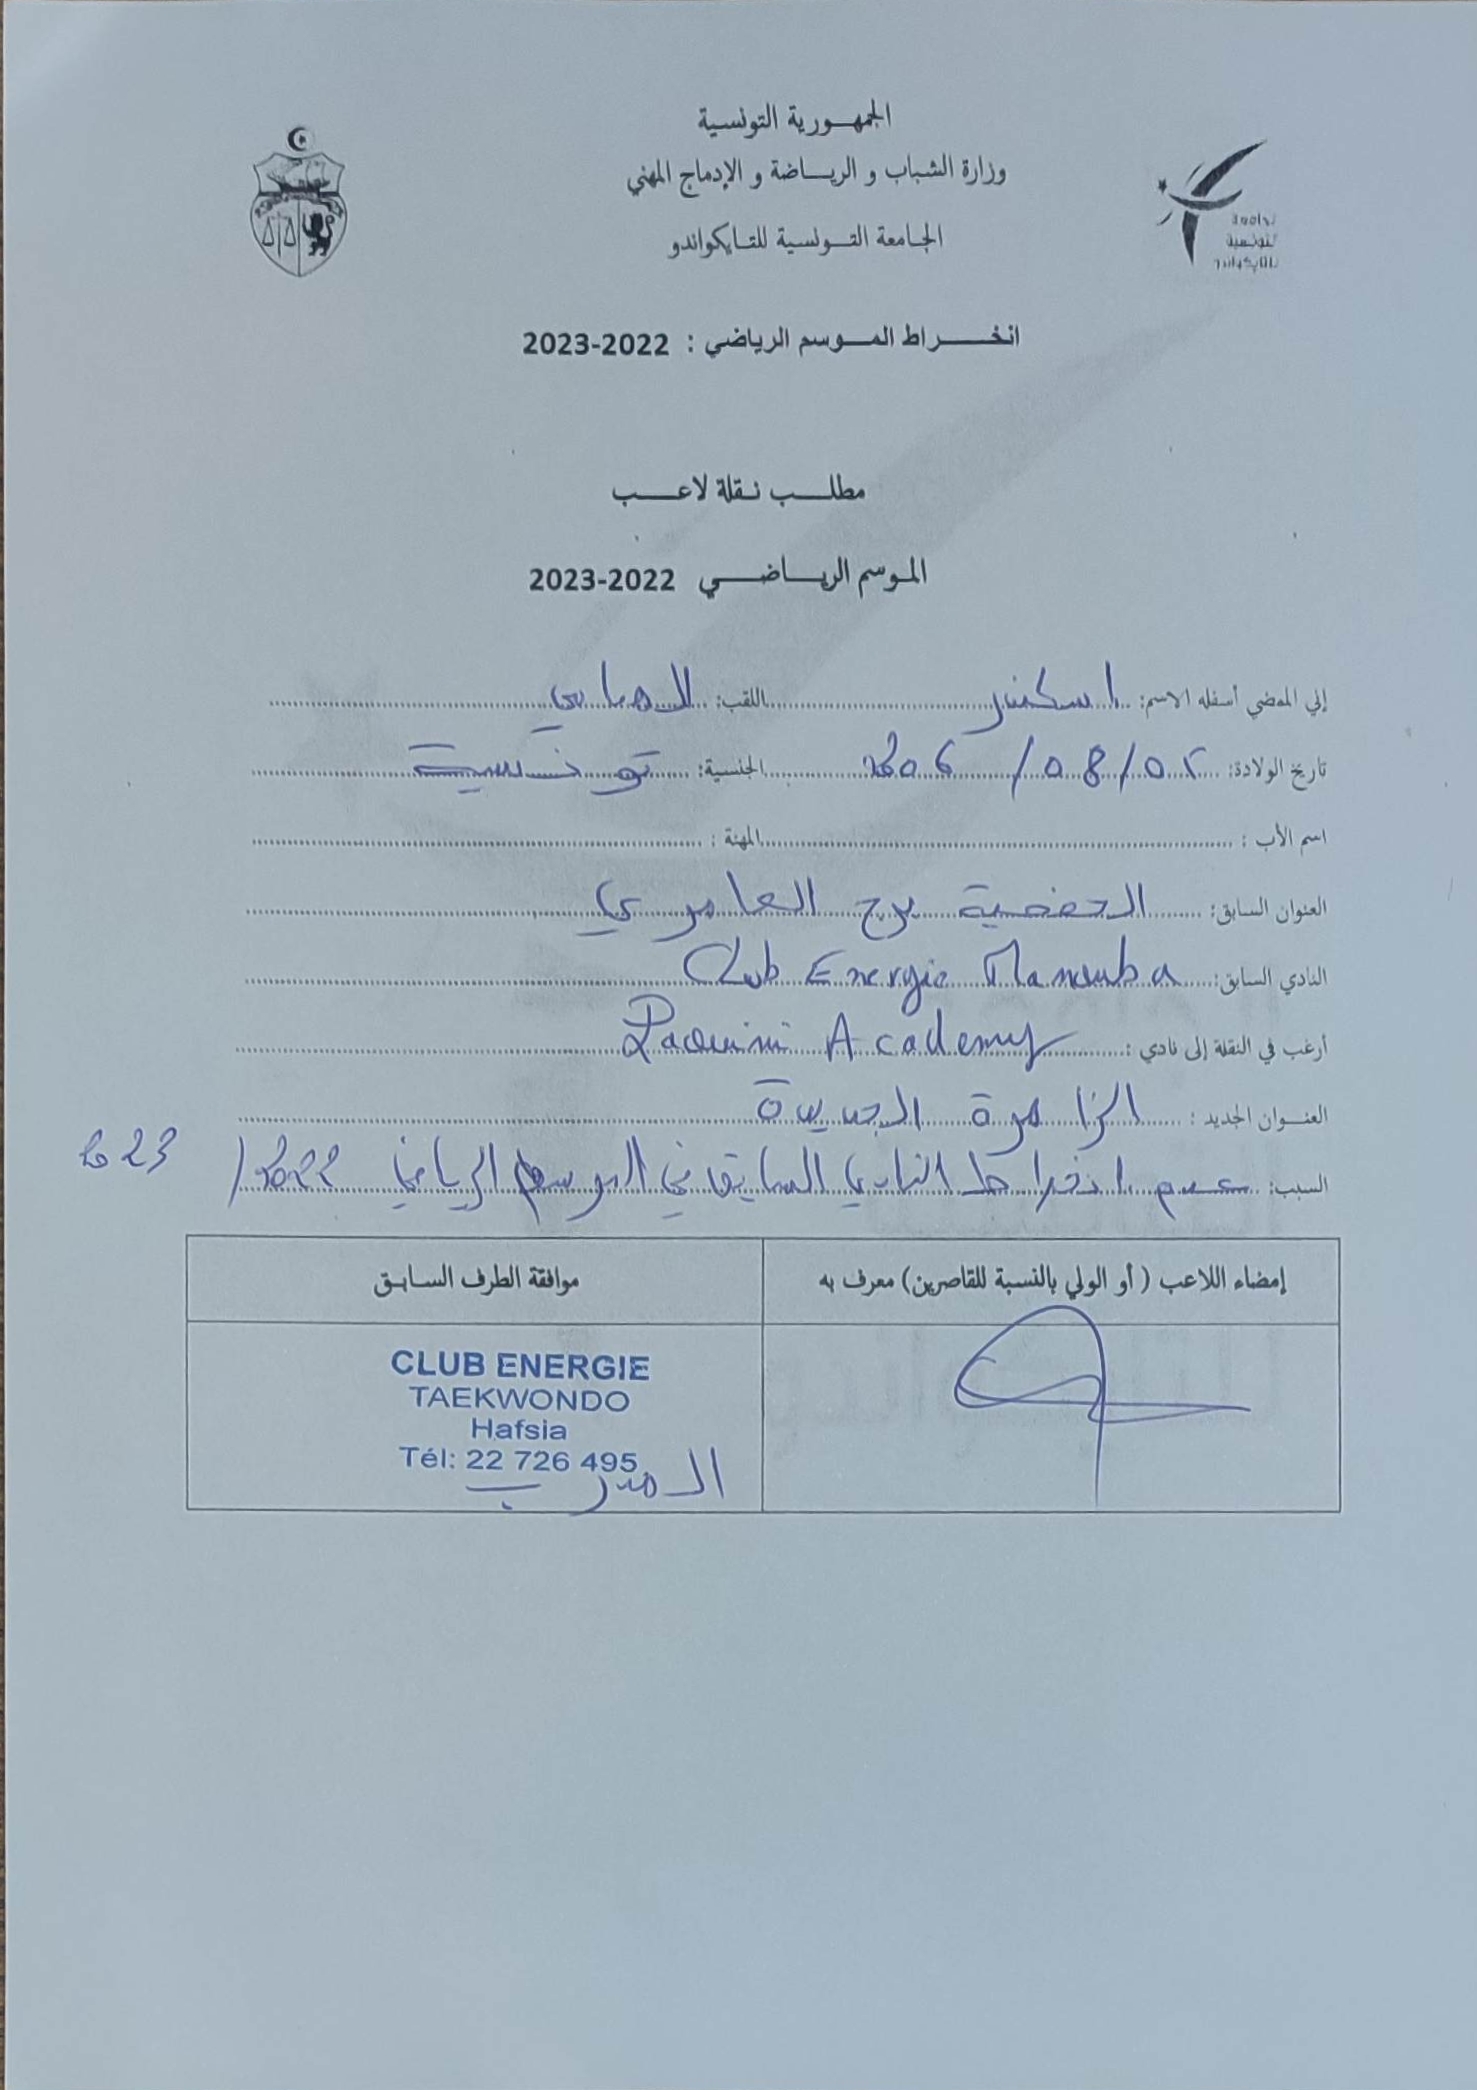 الجمهورية التونسية
وزارة الشباب و الرياضة و الإدماج المهني
الجامعة التونسية للتايكواندو
الجامعة
التونسية
للتايكواندو
انخراط الموسم الرياضي : 2022-2023
مطلب نقلة لاعب
الموسم الرياضي 2022-2023
إني الممضي أسفله الاسم: اسكندر اللقب:
تاريخ الولادة: 02/08/2006 الجنسية: تونسية
اسم الأب : المهنة :
العنوان السابق: الحفصية برج العامري
النادي السابق: Club Energie Manouba
أرغب في النقلة إلى نادي : Academy
العنوان الجديد : الزاهرة الجديدة
السبب: عدم انخراط النادي السابق في الموسم الرياضي 2022/2023
إمضاء اللاعب ( أو الولي بالنسبة للقاصرين) معرف به
موافقة الطرف السابق
CLUB ENERGIE
TAEKWONDO
Hafsia
Tél: 22 726 495
المدرب